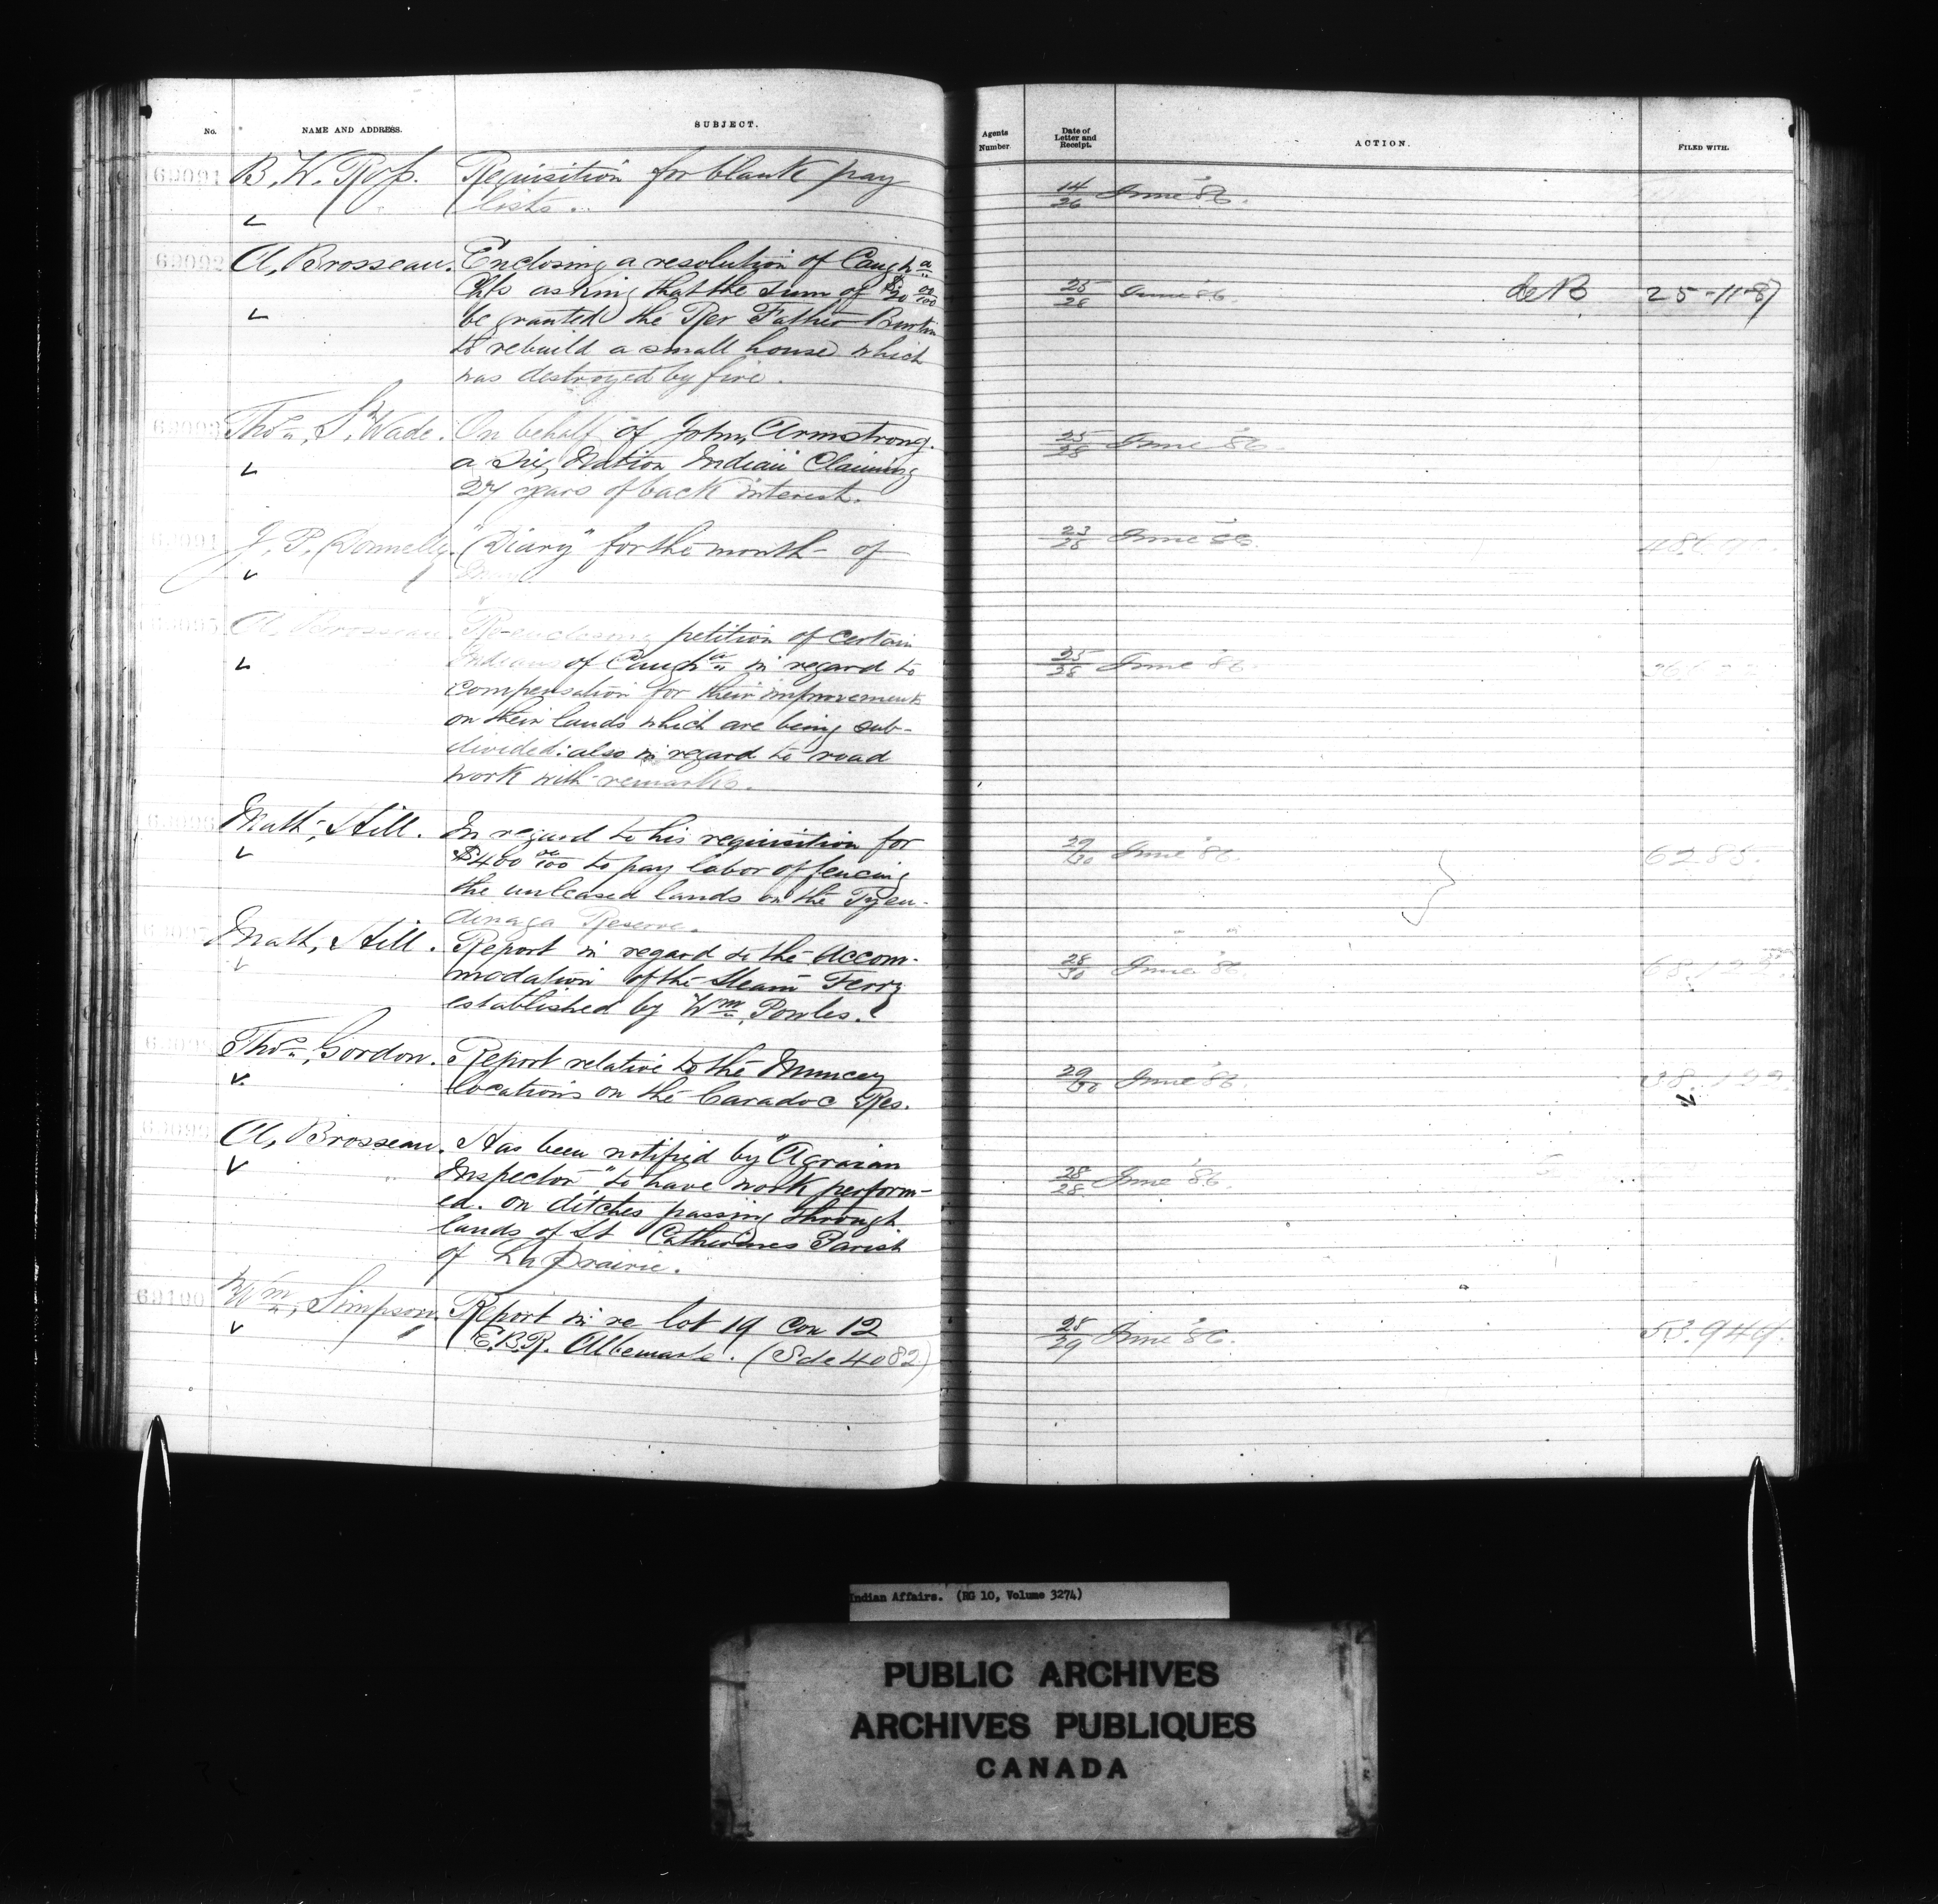 No. NAME AND ADDRESS. SUBJECT. Agents Number. Date of Letter and Receipt. ACTION. FILED WITH.
69091 B. W. Ross. Requisition for blank pay 14/26 June '86.
lists.
69092 A. Brosseau. Enclosing a resolution of Caughna
Chfs asking that the sum of $20 00/100 25/28 June '86. 25-11-87
be granted the Rev Father Burtin
to rebuild a small house which
was destroyed by fire.
69093 Thos. S. Wade. On behalf of John Armstrong. 25/28 June '86.
a Six Nation Indian Claiming
27 years of back interest.
69094 J. P. Donnelly. "Diary" for the month of 23/28 June '86.
69095 A. Brosseau Re-enclosing petition of certain
Indians of Caugha in regard to 25/28 June '86.
compensation for their improvements
on their lands which are being sub-
divided: also in regard to road
work with remarks.
69096 Math. Hill. In regard to his requisition for
$400 00/100 to pay labor of fencing 29/30 June '86. 6285.
the unleased lands on the Tyen-
dinaga Reserve.
69097 Math. Hill. Report in regard to the Accom-
modation of the Steam Ferry 28/30 June '86.
established by Wm. Powles.
69098 Thos. Gordon. Report relative to the Muncey 29/30 June '86.
locations on the Caradoc Res.
69099 A. Brosseau. Has been notified by "Agrarian
Inspector" to have work perform- 28/28 June '86.
ed. on ditches passing through
lands of St Catherines Parish
of La prairie.
69100 Wm. Simpson. Report in re lot 19 Con 12 28/29 June '86. 53.949.
E.B.R. Albemarle. (Sale 4082)
Indian Affairs. (RG 10, Volume 3274)
PUBLIC ARCHIVES
ARCHIVES PUBLIQUES
CANADA